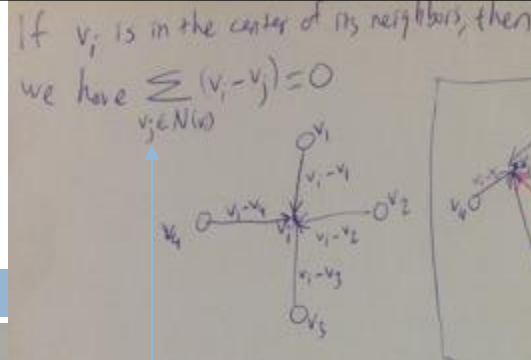 If vᵢ is in the center of its neighbors, then
we have Σ (vᵢ-vⱼ)=0
vⱼ∈N(v)
v₁
vᵢ-v₁
v₄
vᵢ-v₄
vᵢ
vᵢ-v₂
v₂
vᵢ-v₃
v₃
v₄